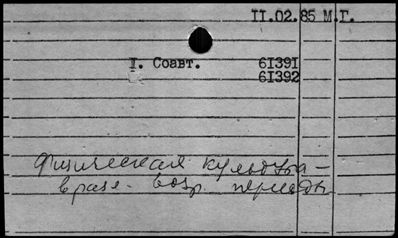 II.02.85 М.Г.
I. Соавт. 61391
61392
физическая культура -
в разл. возр. периоды